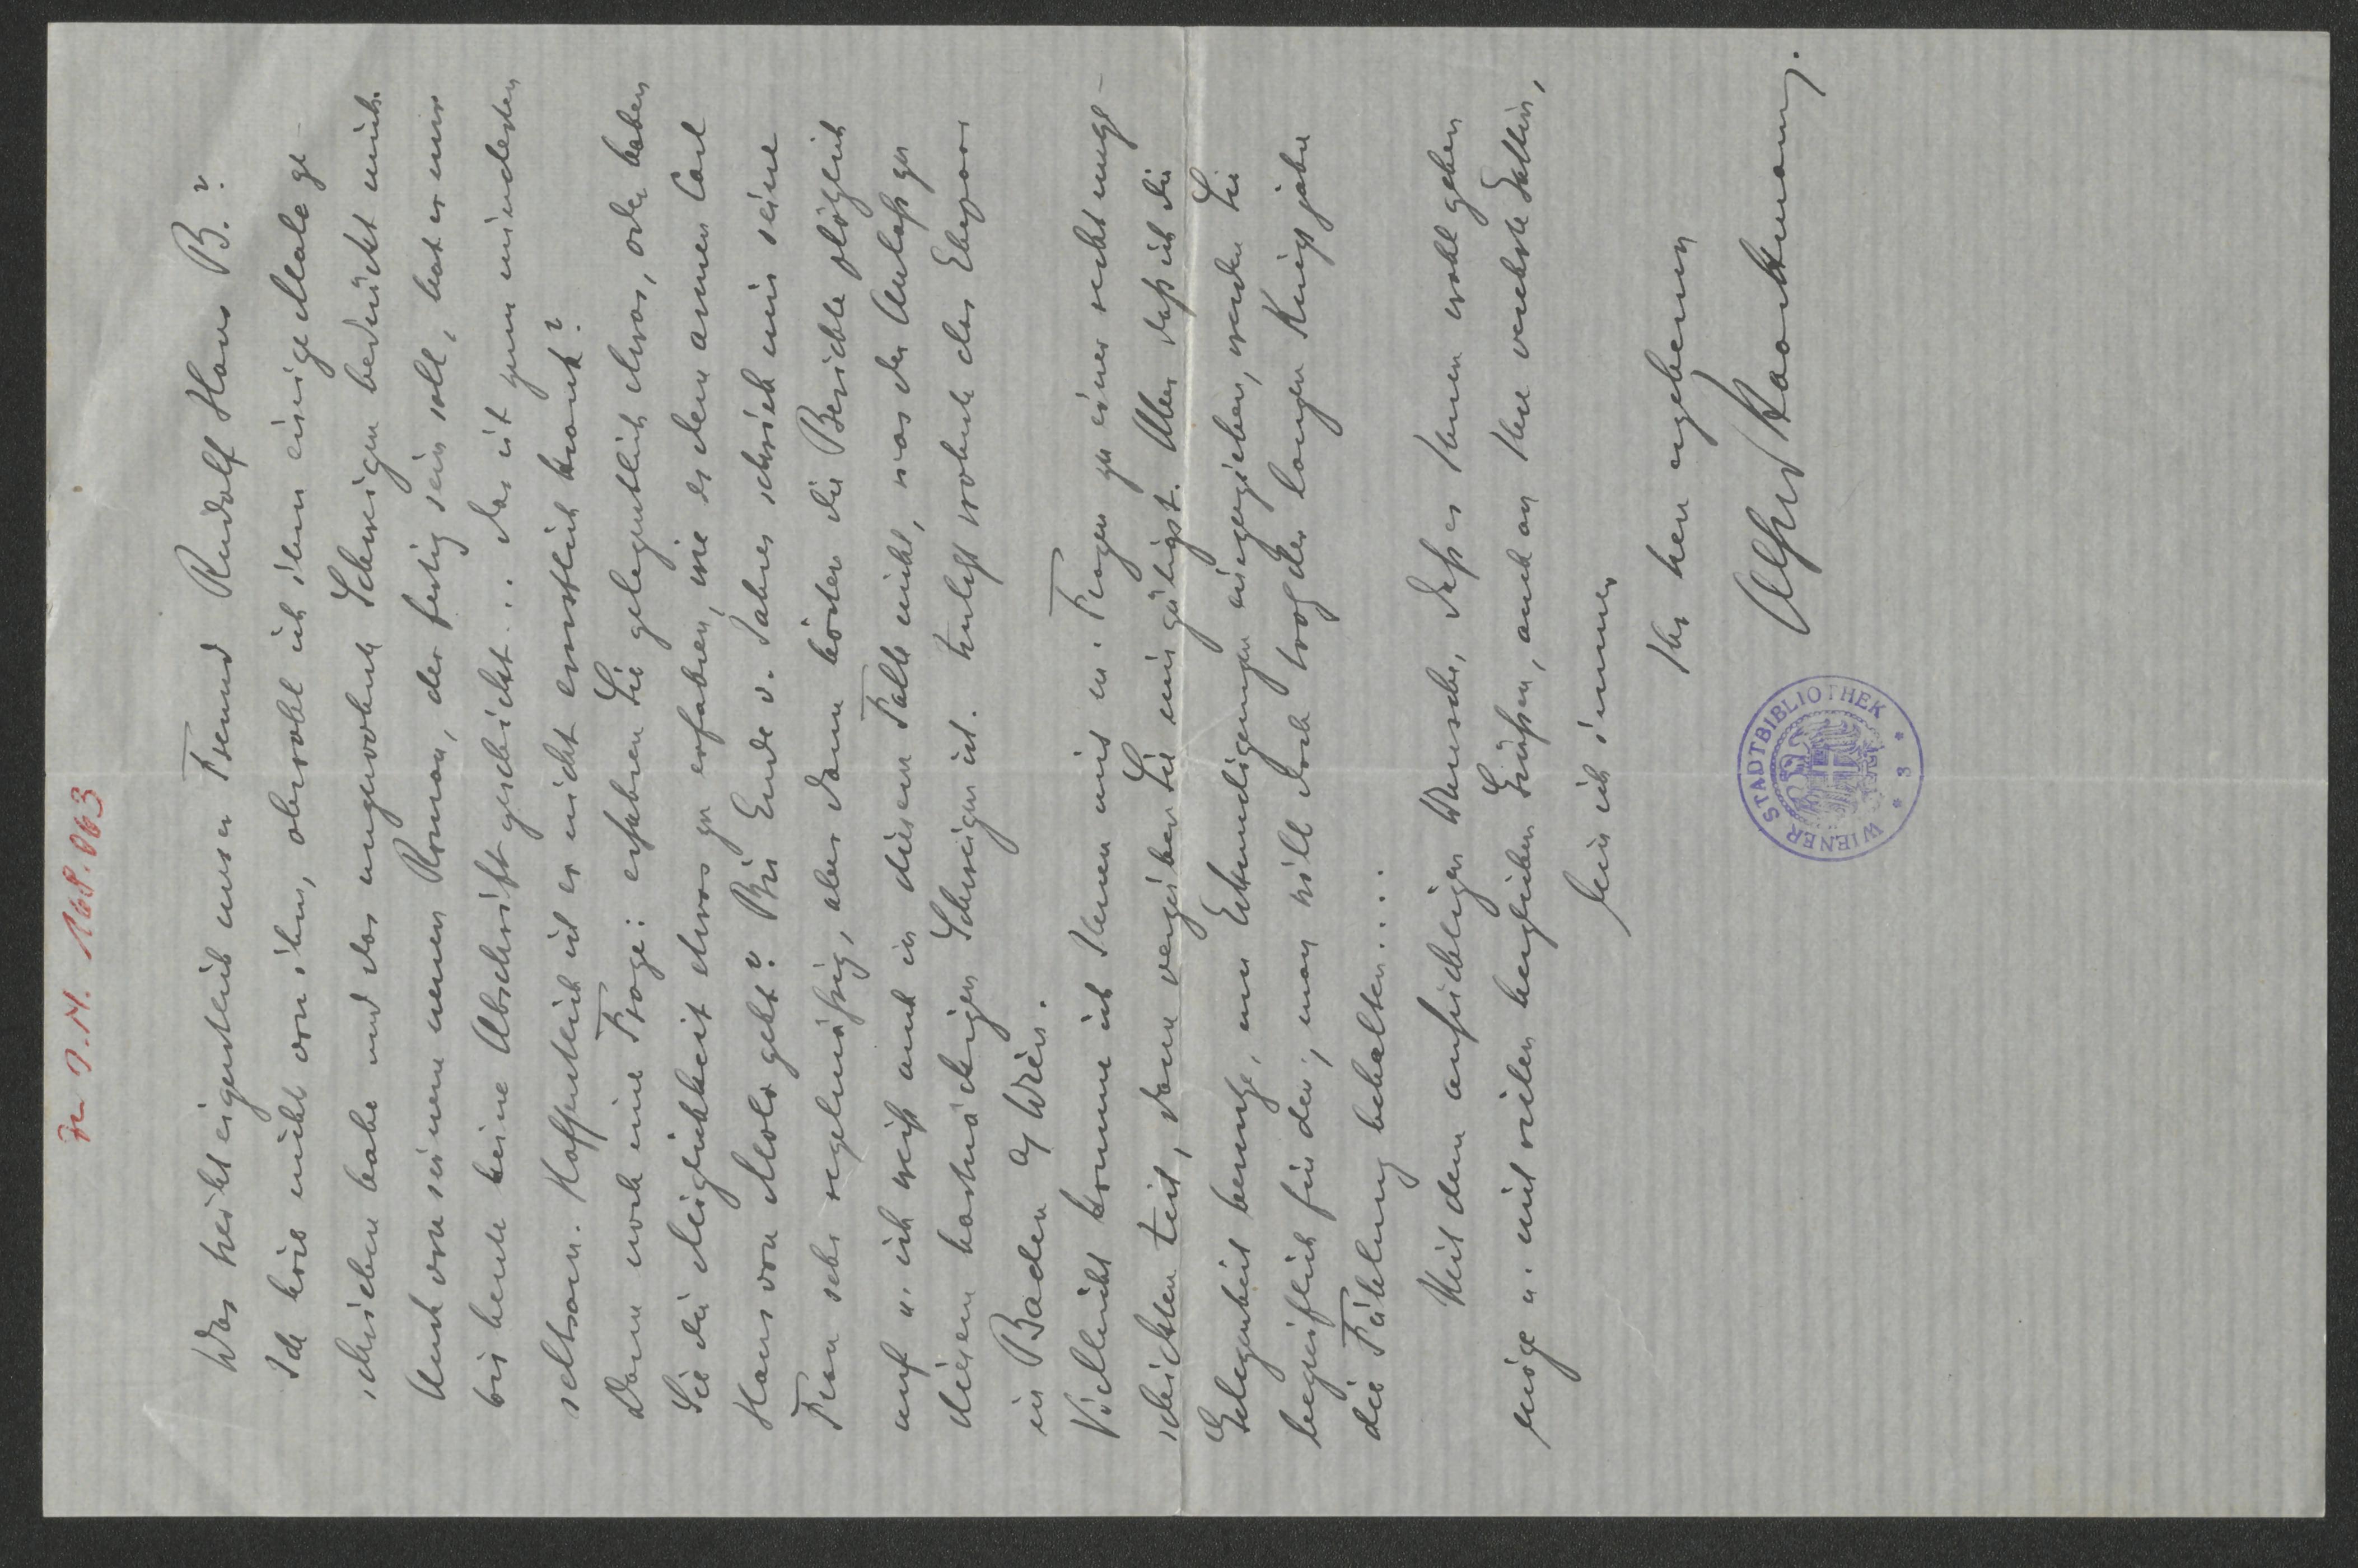 Zu I.N. 168.863
Was treibt eigentlich unser Freund Rudolf Hans B.?
Ich höre nicht von ihm, obwohl ich ihm einige Male ge-
schrieben habe und das ungewohnte Schweigen bedrückt mich.
Auch von seinem neuen Roman, der fertig sein soll, hat er mir
bis heute keine Abschrift geschickt... das ist zum mindesten
seltsam. Hoffentlich ist er nicht ernstlich krank?
Dann noch eine Frage: erfahren Sie gelegentlich etwas, oder haben
Sie die Möglichkeit etwas zu erfahren, wie es dem armen Carl
Hans von Moor geht? Bis Ende v. Jahres schrieb mir seine
Frau sehr regelmäßig, aber dann hörten die Berichte plötzlich
auf u. ich weiß auch in diesem Falle nicht, was der Anlaß zu
diesem hartnäckigen Schweigen ist. Zuletzt wohnte das Ehepaar
in Baden b/ Wien.
Vielleicht komme ich Ihnen mit m. Fragen zu einer recht unge-
schickten Zeit, dann verzeihen Sie mir gütigst. Aber daß ich die
Gelegenheit benutze, um Erkundigungen einzuziehen, werden Sie
begreiflich finden, man will doch trotz der langen Kriegsjahre
die Fühlung behalten....
Mit dem aufrichtigen Wunsche, daß es Ihnen wohl gehen
möge u. mit vielen herzlichen Grüßen, auch an Ihre verehrte Gattin,
bin ich immer
Ihr treu ergebener
WIENER STADTBIBLIOTHEK
* 3 *